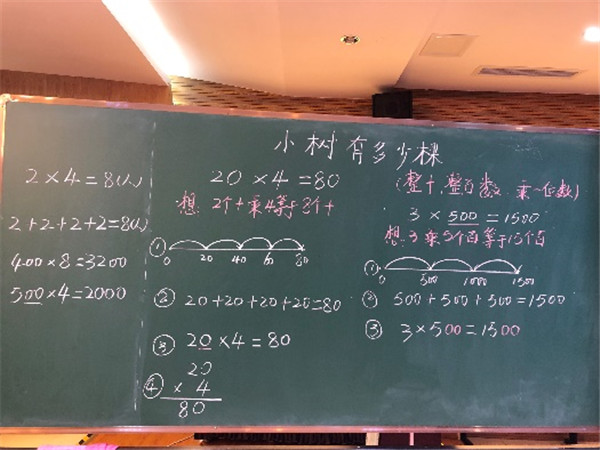 小树有多少棵
2×4=8(人)
2+2+2+2=8(人)
400×8=3200
500×4=2000
20×4=80
想:2个十乘4等于8个十
① 0 20 40 60 80
② 20+20+20+20=80
③ 20×4=80
④ 20
×4
80
(整十、整百数 乘一位数)
3×500=1500
想:3乘5个百等于15个百
① 0 500 1000 1500
② 500+500+500=1500
③ 3×500=1500